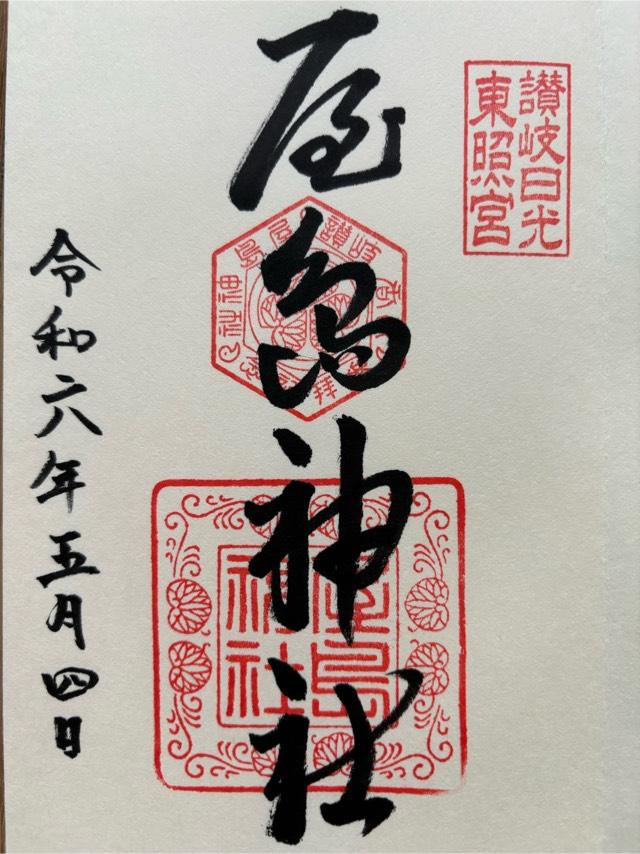 讃岐日光
東照宮
屋島神社
屋島
神社
令和六年五月四日